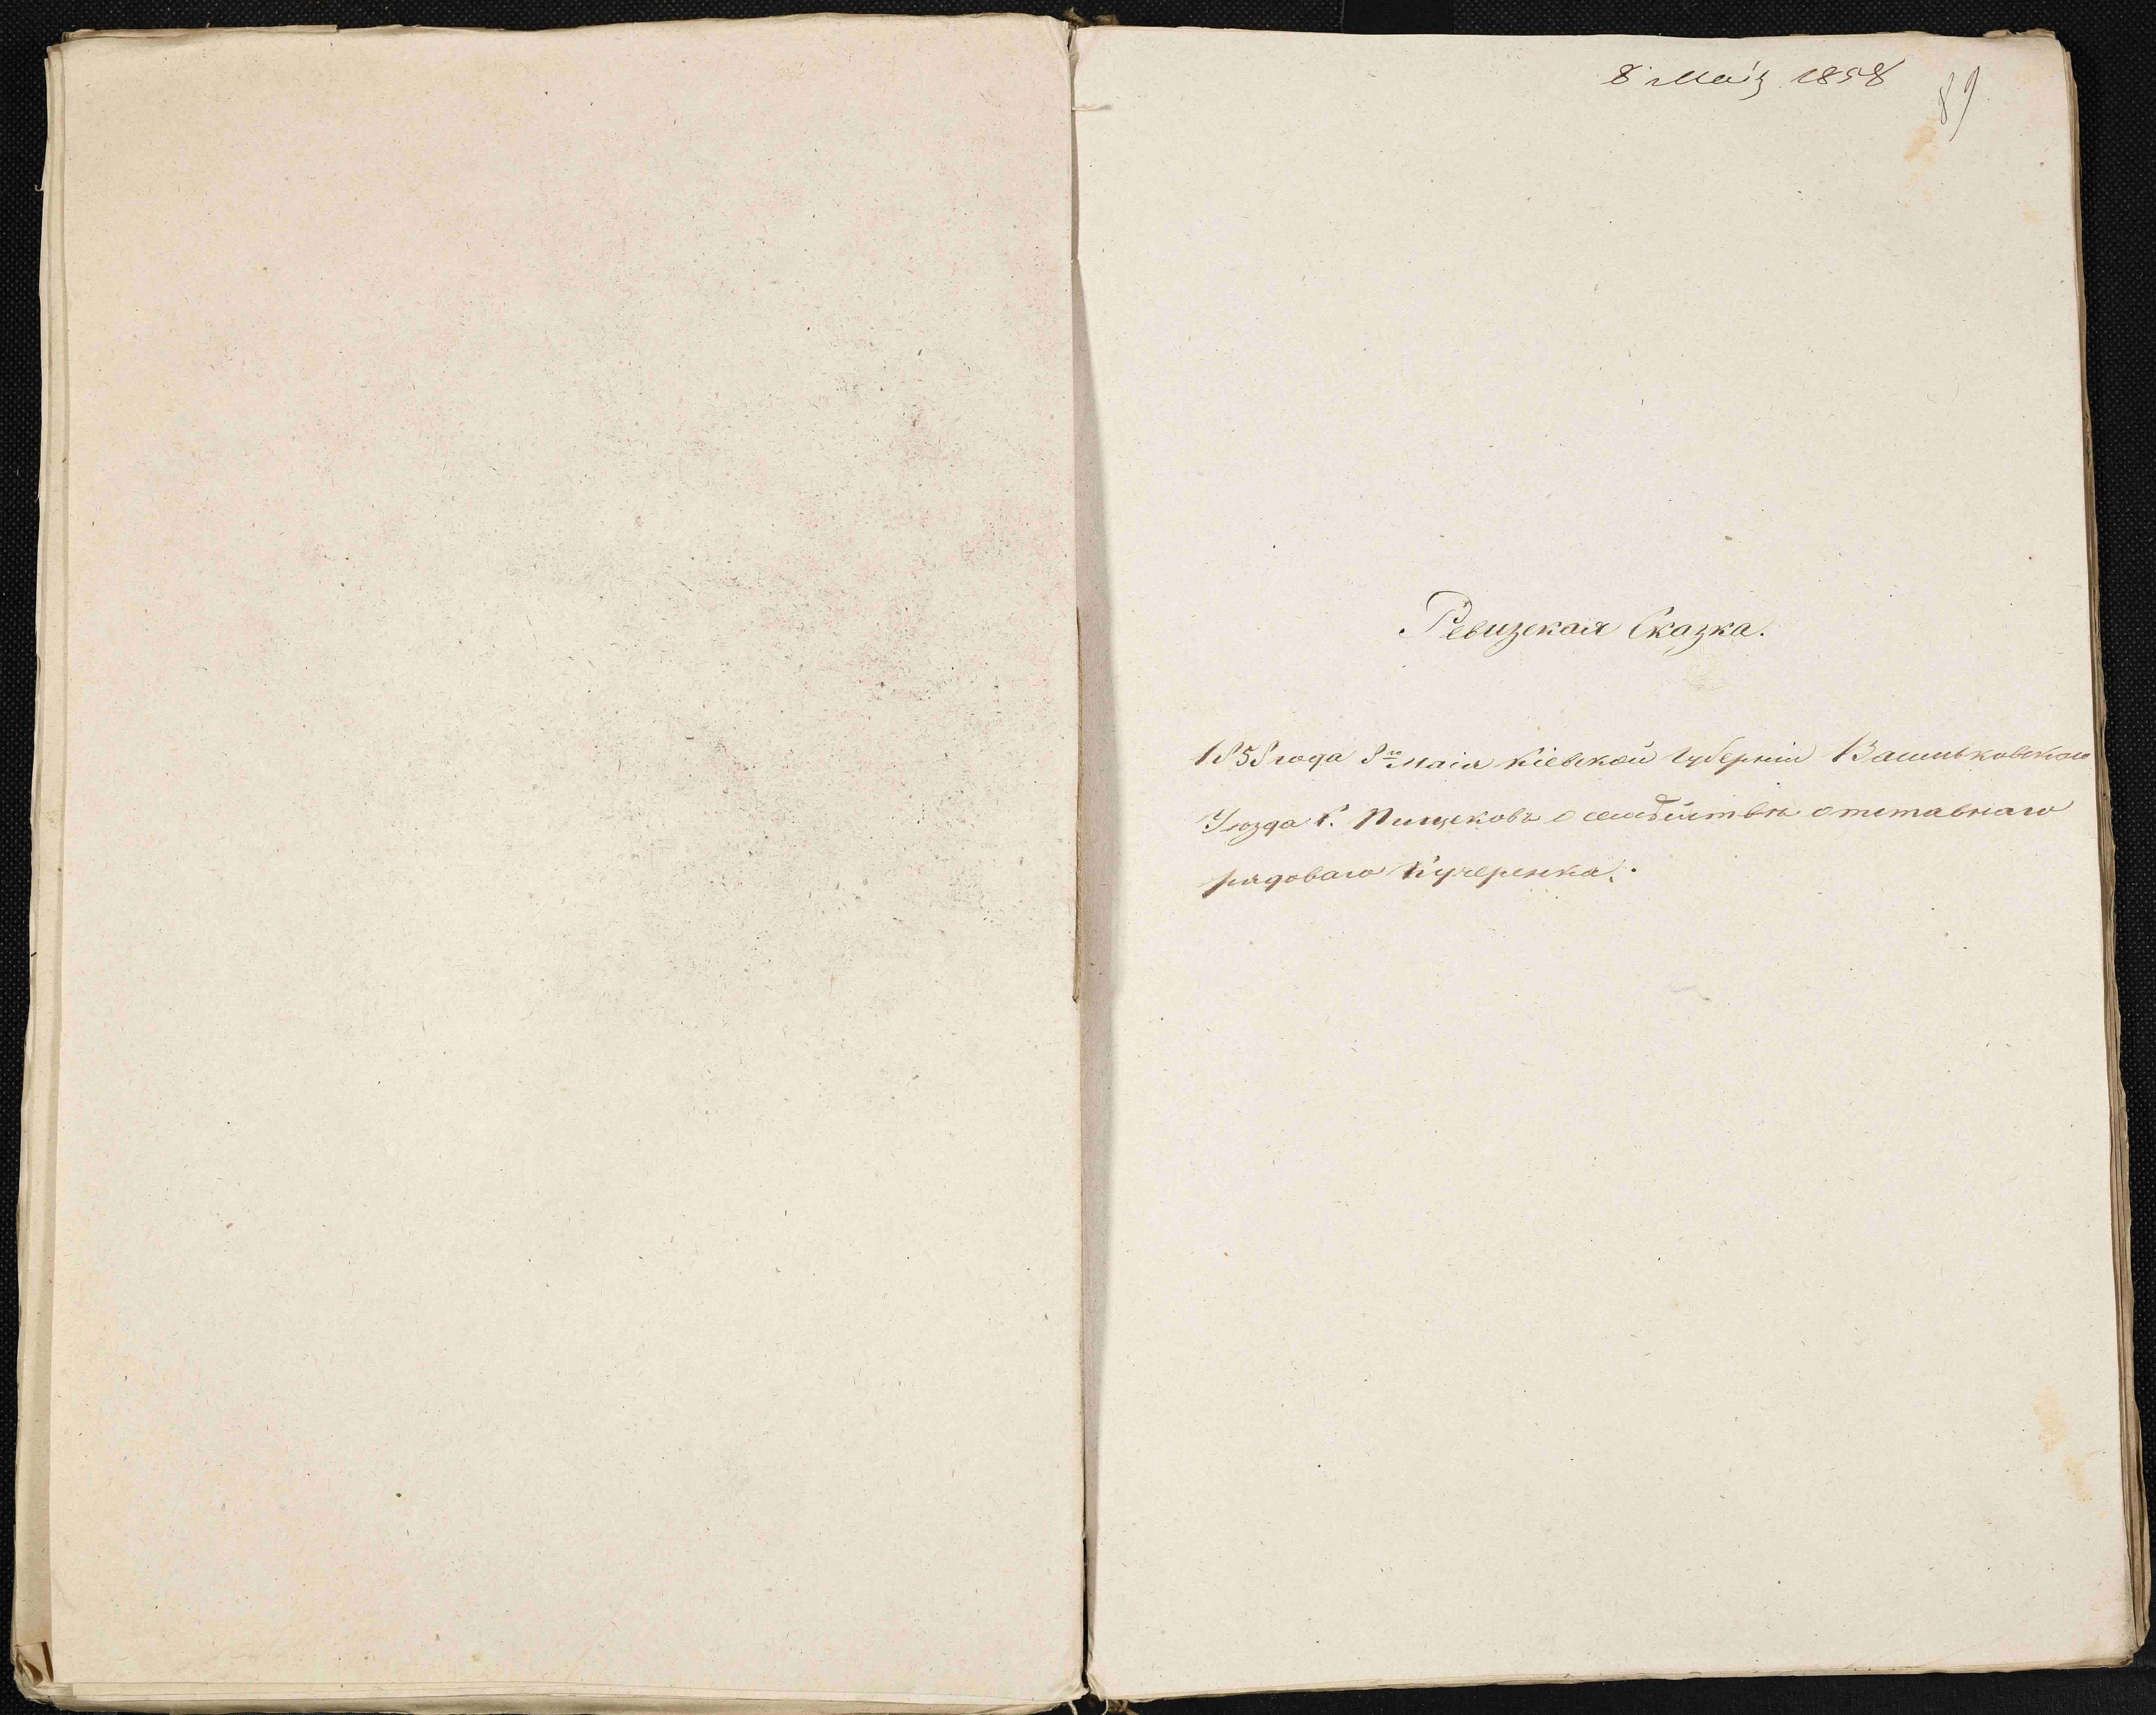 8 Маія 1858
89
Ревизская Сказка.
1858 года 8го Маія Кіевской Губерніи Васильковского
Уезда С. Пищиковъ о семействѣ отставнаго
рядоваго Кучеренка.